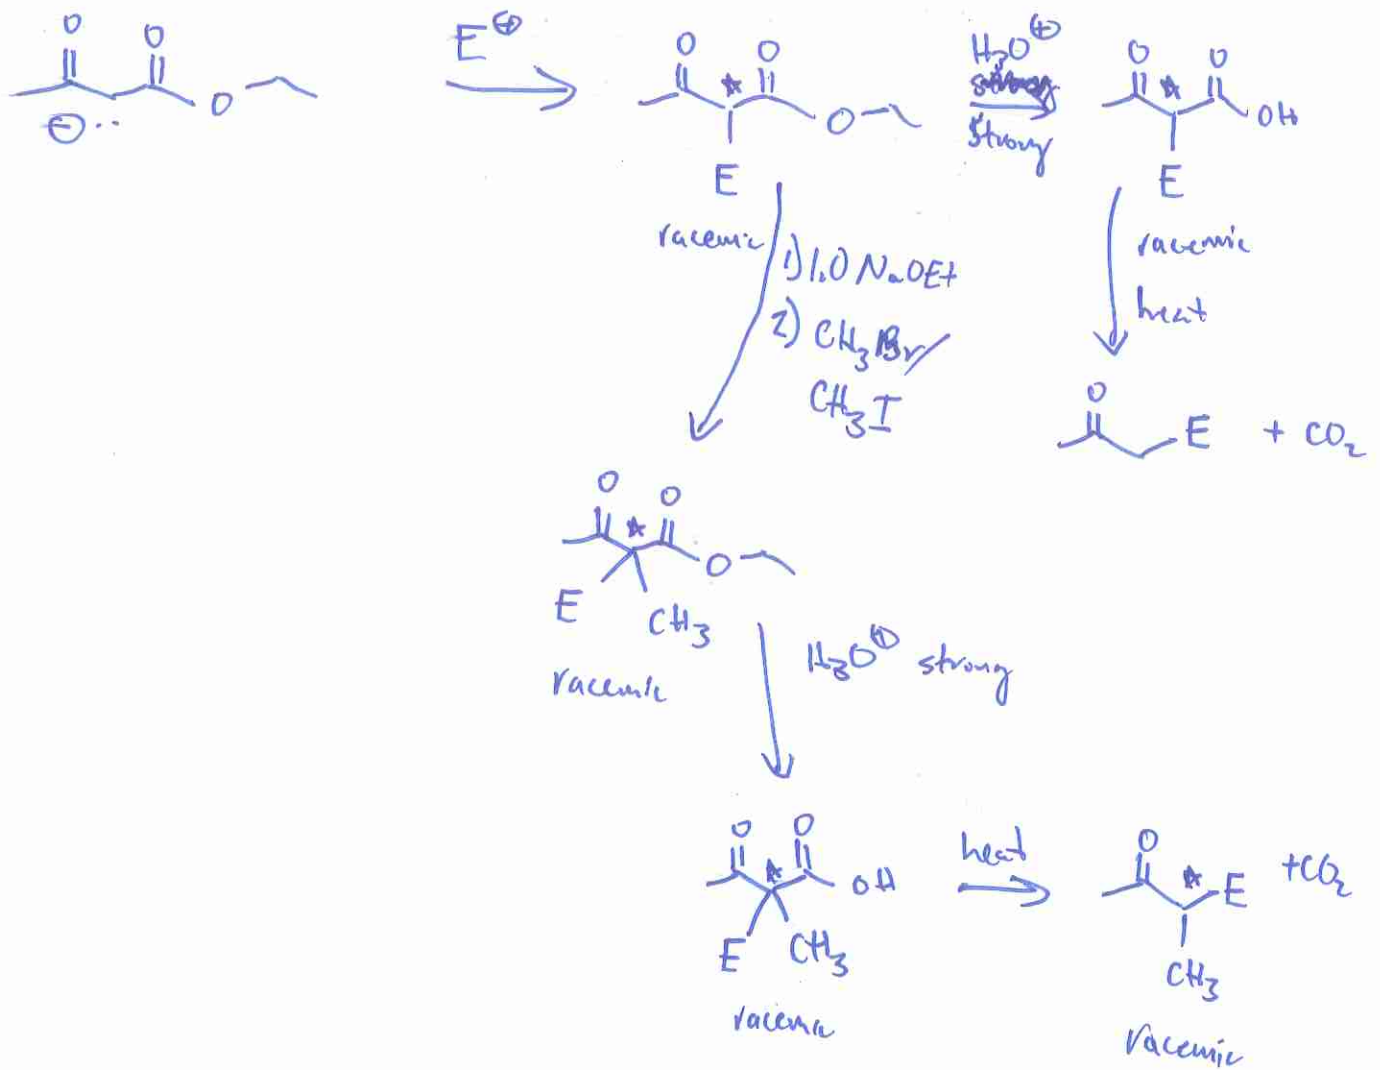 O O O
⊖ ··
E⊕
O O O
E
racemic
H₃O⊕
strong
O O OH
E
racemic
heat
1) 1.0 NaOEt
2) CH₃Br/
CH₃I
O E + CO₂
O O O
E CH₃
racemic
H₃O⊕ strong
O O OH
E CH₃
racemic
heat
O E +CO₂
CH₃
Racemic